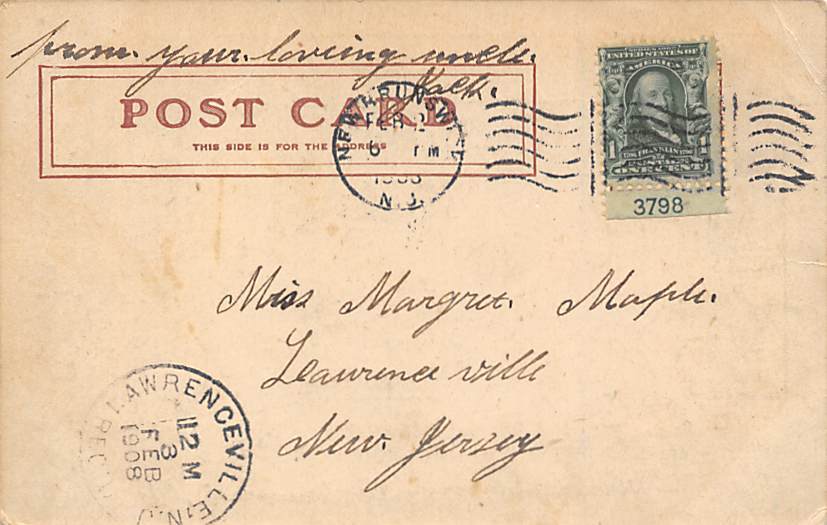 from. your. loving uncle.
Jack.
POST CARD
THIS SIDE IS FOR THE ADDRESS
NEW BRUNSWICK
FEB
6 PM
1908
N.J.
SERIES 1902
UNITED STATES OF
AMERICA
1 FRANKLIN 1
ONE CENT
3798
Miss Margret. Maple.
Lawrence ville
New. Jersey
LAWRENCEVILLE, N.J.
12 M
3
FEB
1908
REC'D